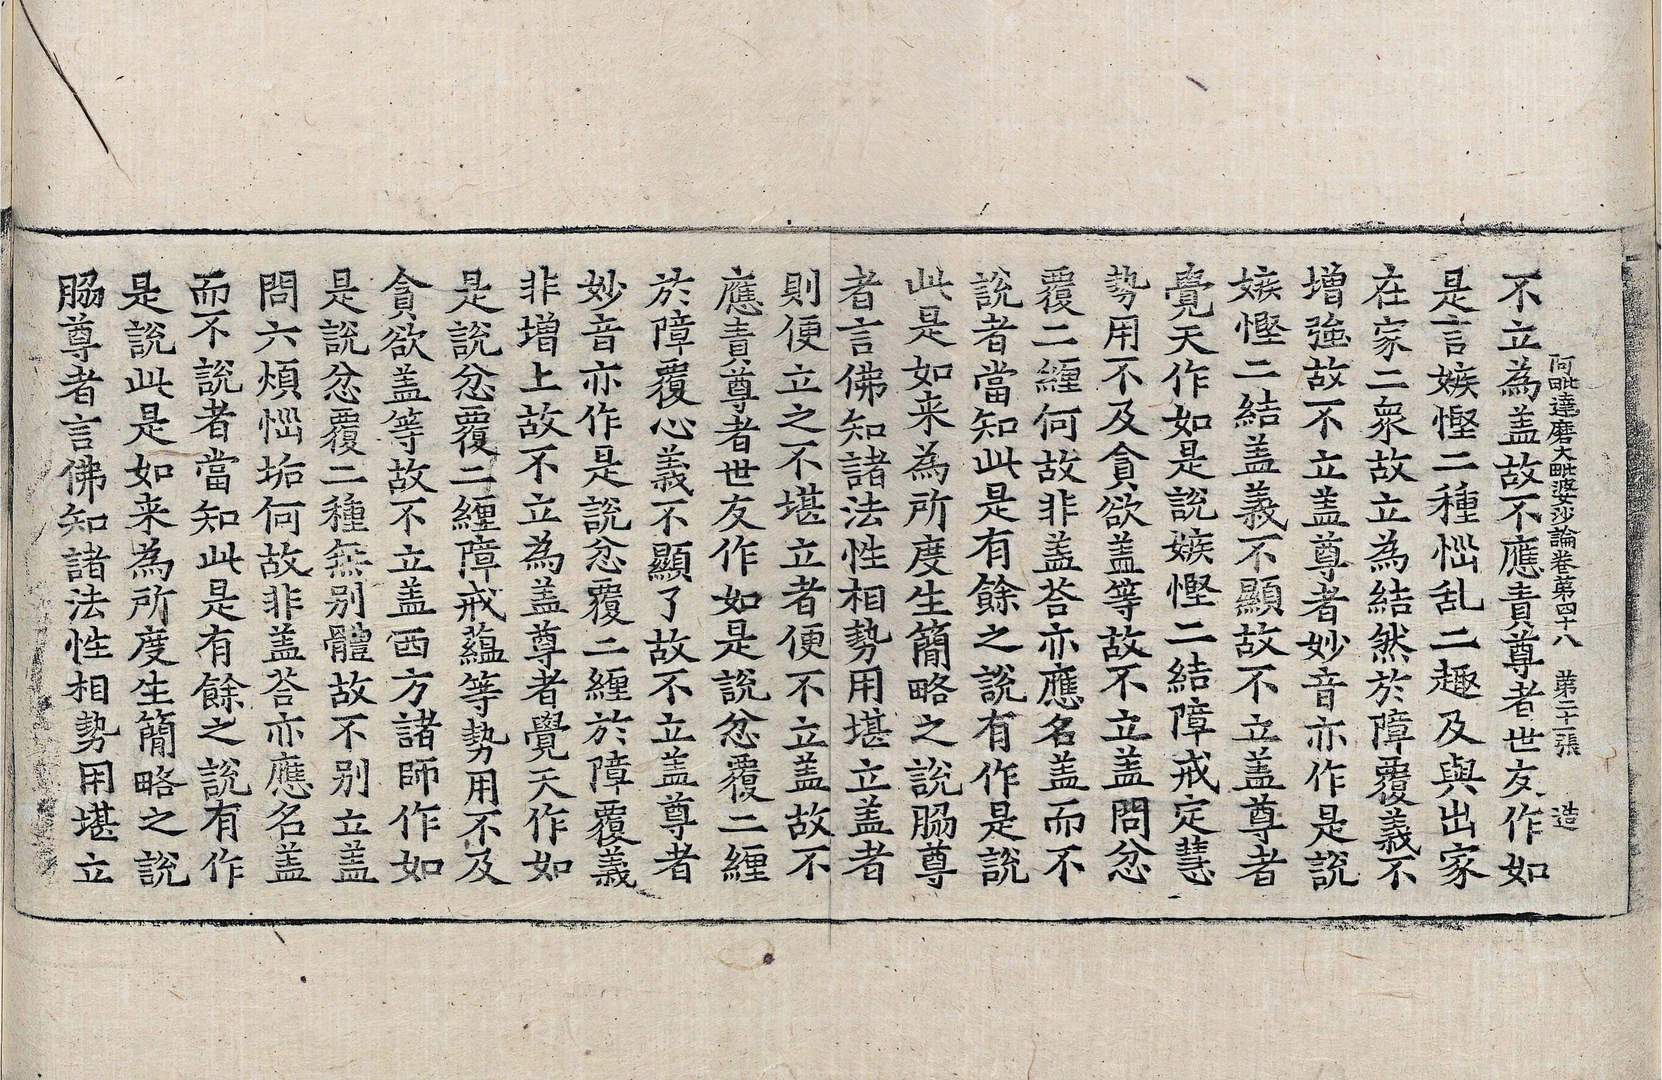 阿毗達磨大毗婆沙論卷第四十八　第二十二張　造
不立為盖故不應責尊者世友作如
是言嫉慳二種惱乱二趣及與出家
在家二衆故立為結然於障覆義不
增強故不立盖尊者妙音亦作是說
嫉慳二結盖義不顯故不立盖尊者
覺天作如是說嫉慳二結障戒定慧
勢用不及貪欲盖等故不立盖問忿
覆二纏何故非盖荅亦應名盖而不
說者當知此是有餘之說有作是說
此是如来為所度生簡略之說脇尊
者言佛知諸法性相勢用堪立盖者
則便立之不堪立者便不立盖故不
應責尊者世友作如是說忿覆二纏
於障覆心義不顯了故不立盖尊者
妙音亦作是說忿覆二纏於障覆義
非增上故不立為盖尊者覺天作如
是說忿覆二纏障戒蘊等勢用不及
貪欲盖等故不立盖西方諸師作如
是說忿覆二種無别體故不别立盖
問六煩惱垢何故非盖荅亦應名盖
而不說者當知此是有餘之說有作
是說此是如来為所度生簡略之說
脇尊者言佛知諸法性相勢用堪立